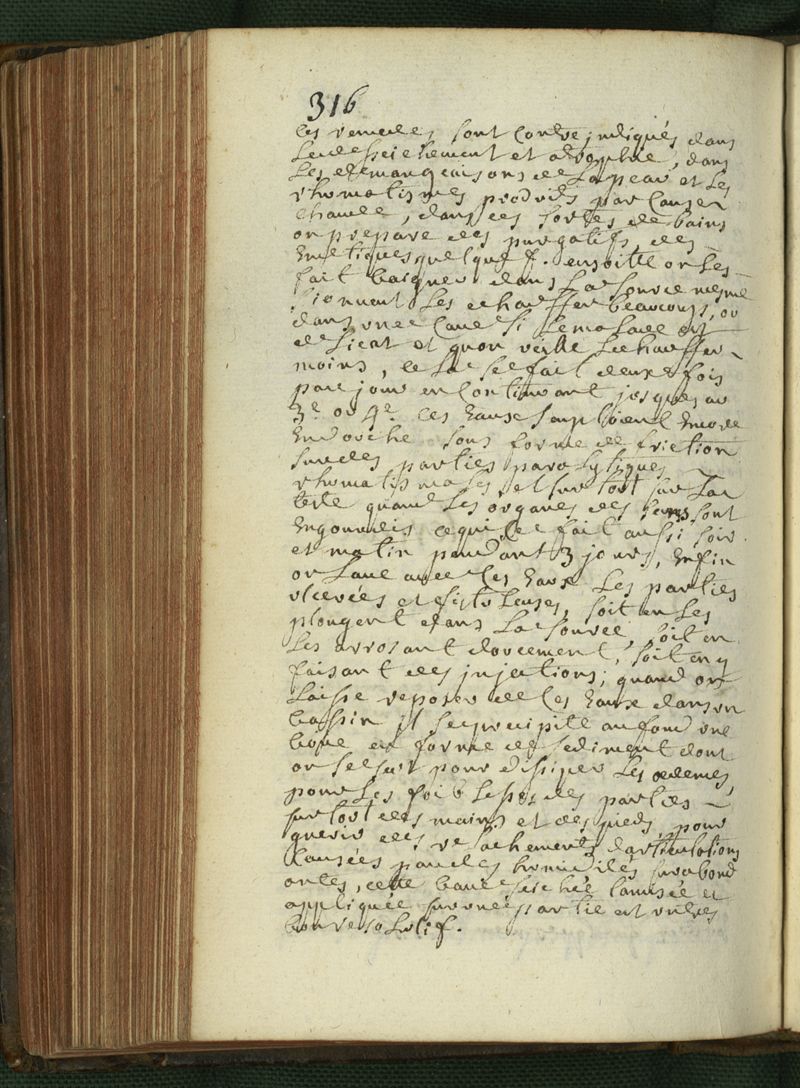 316
ces remedes sont contre indiqués dans
le dessechement et atrophie, dans
les demangeaisons de la peau et les
rhomatismes produits par cause
chaude, dans ces sortes de bains
on prepare des purgatifs, des
Emetiques quelque f. ensuitte on les
fait baigner dans la source mesme
s'ils les echauffer beaucoup, ou
dans une cuve si le malade est
delicat et qu'on veille l'echauffer
moins, cela se fait deux fois
par jour en continuant jusques au
3e ou 4e ces Eaux semploient Encore
En douche sous forme de friction
sur les parties paralytiques
rhomatismales et sur tout sur la
teste quand les organes des sens sont
Engourdis ce qui se fait aussi soir
et matin pendant 3 jours, Enfin
on lave avec ces Eaux les parties
ulcerées et fistuleuses, soit en les
plongent dans la source, soit en
les arrosant doucement, soit en y
faisant des injections; quand on
laisse reposer de ces Eaux dans un
bassin il se precipite au fond une
boue en forme de sediment dont
on se sert pour dissiper les oedemes,
pour les foiblesses des parties
surtout des mains et des pieds, pour
guerir des relachements d'articulations
causées par des humidités surabond
antes, cette boue seichée tamisée et
appliquée sur une partie est un tres
bon resolutif.